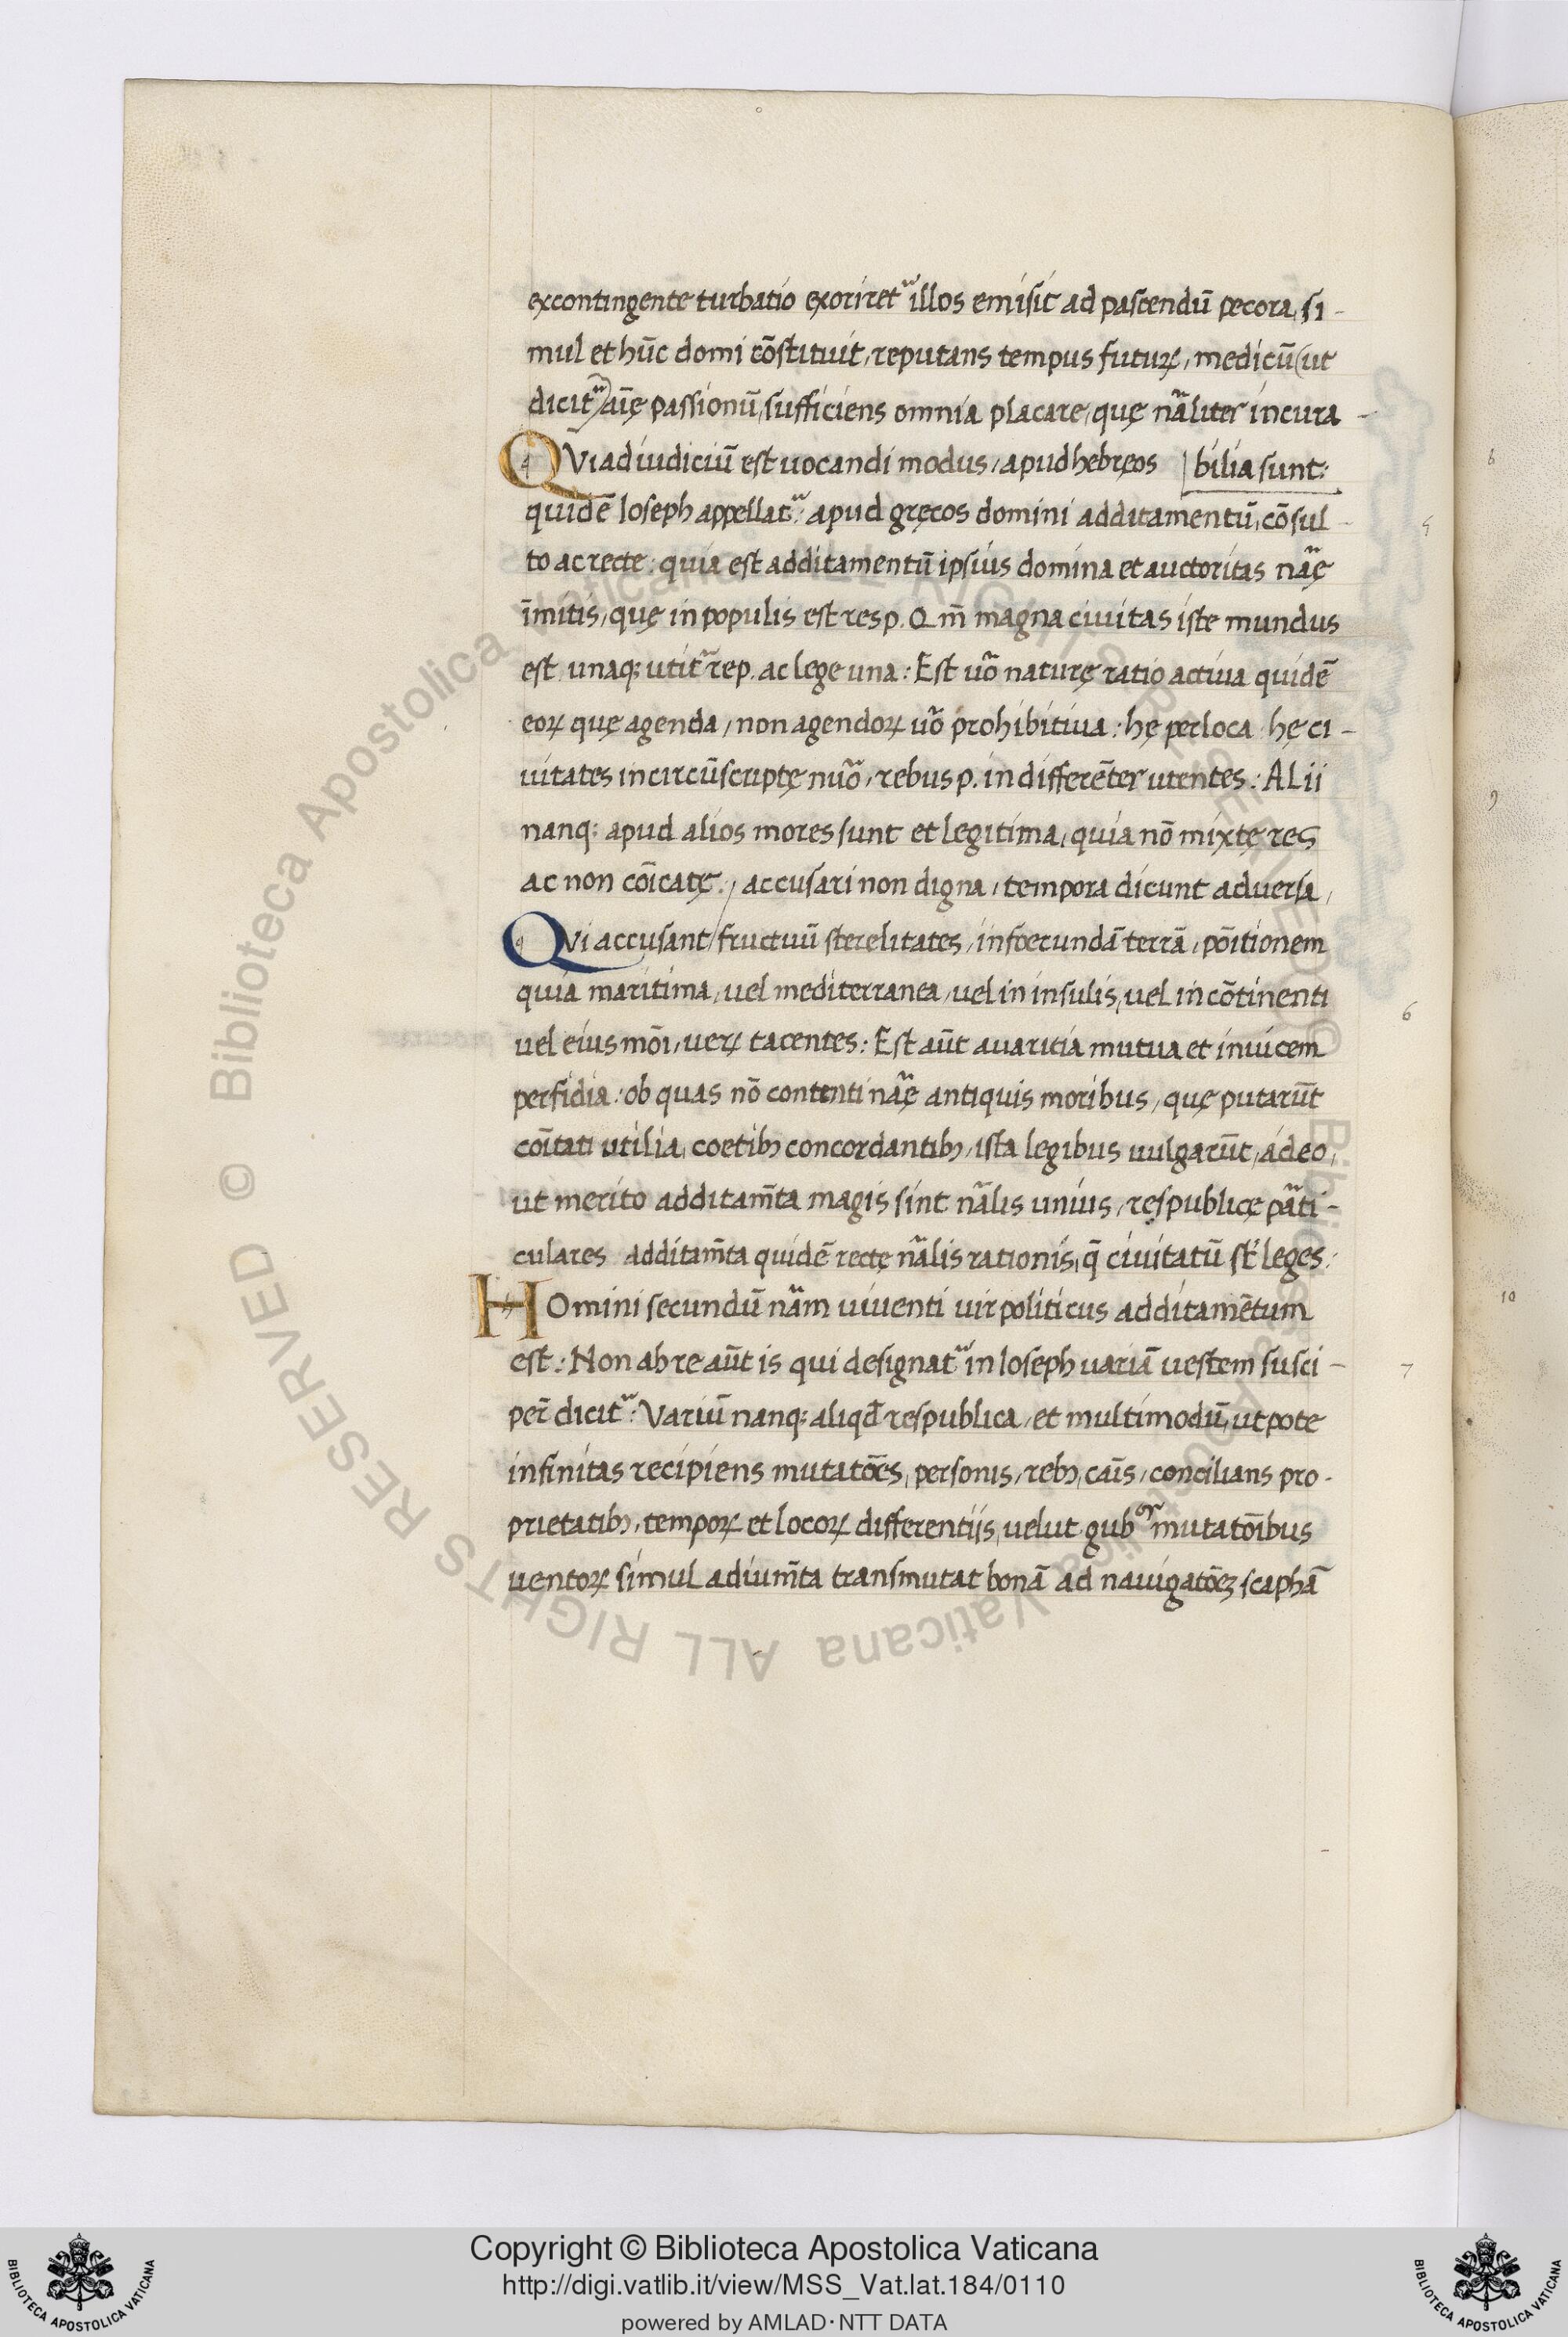 excontingente turbatio exoriretᷓ illos emisit ad pascendū pecora, si-
mul et hūc domi cōstituit, reputans tempus futurę, medicū (ut
dicitᷓ) aīę passionū, sufficiens omnia placare, quę nᷓaliter incura-
bilia sunt:
QVi ad iudiciū est uocandi modus, apud hebręos
quidē Ioseph appellatᷓ: apud gręcos domini additamentū, cōsul-
to ac recte: quia est additamentū ipsius domina et auctoritas nᷓaę
īmitis, quę in populis est resp. Qm̄ magna ciuitas iste mundus
est unaq; utitᷓ rep. ac lege una: Est uᷓo naturę ratio actiua quidē
eoꝝ quę agenda, non agendoꝝ uᷓo prohibitiua: hę per loca hę ci-
uitates incircūscriptę nuᷓo, rebus p. in differēter utentes: ALii
nanq; apud alios mores sunt et legitima, quia nō mixtę res
ac non cōicatę., accusari non digna, tempora dicunt aduersa,
QVi accusant/fructuū sterelitates, infœcundā terrā, pōitionem
quia maritima, uel mediterranea, uel in insulis, uel in cōtinenti
uel eius mōi, ueꝝ tacentes: Est aūt auaritia mutua et inuicem
perfidia: ob quas nō contenti nᷓaę antiquis moribus, quę putarūt
cōitati utilia, coetibȝ concordantibȝ, ista legibus uulgarūt, adeo,
ut merito additam̄ta magis sint nᷓalis unius, respublicę pᷓati-
culares additam̄ta quidē rectę nᷓalis rationis, q̄ ciuitatū st̄ leges:
HOmini secundū nᷓam uiuenti uir politicus additamētum
est: Non ab re aūt is qui designatᷓ in Ioseph uariā uestem susci-
per̄ dicitᷓ: Variū nanq; aliqd̄ respublica, et multimodū, utpote
infinitas recipiens mutatōēs, personis, rebȝ, caīs, concilians pro-
prietatibȝ, tempoꝝ et locoꝝ differentiis, uelut gubᵒʳ mutatōībus
uentoꝝ simul adium̄ta transmutat bonā ad nauigatōēȝ scaphā
5
6
7
8
9
10
Biblioteca Apostolica Vaticana ALL RIGHTS RESERVED ©
Copyright © Biblioteca Apostolica Vaticana
http://digi.vatlib.it/view/MSS_Vat.lat.184/0110
powered by AMLAD·NTT DATA
BIBLIOTECA APOSTOLICA VATICANA
BIBLIOTECA APOSTOLICA VATICANA